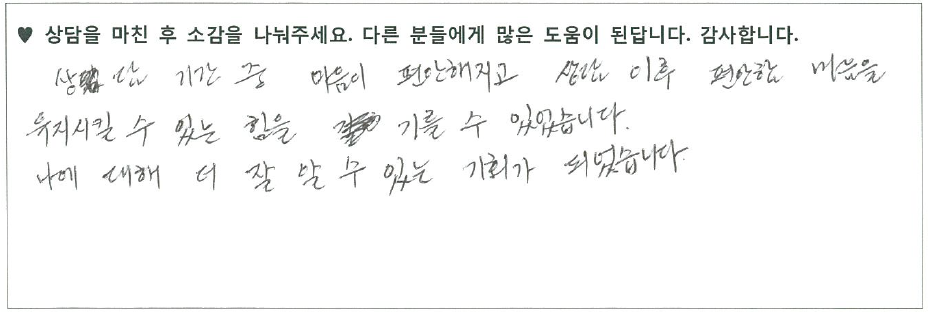 ♥ 상담을 마친 후 소감을 나눠주세요. 다른 분들에게 많은 도움이 된답니다. 감사합니다.
상담 기간 중 마음이 편안해지고 상담 이후 편안함 마음을
유지시킬 수 있는 힘을 기를 수 있었습니다.
나에 대해 더 잘 알 수 있는 기회가 되었습니다.